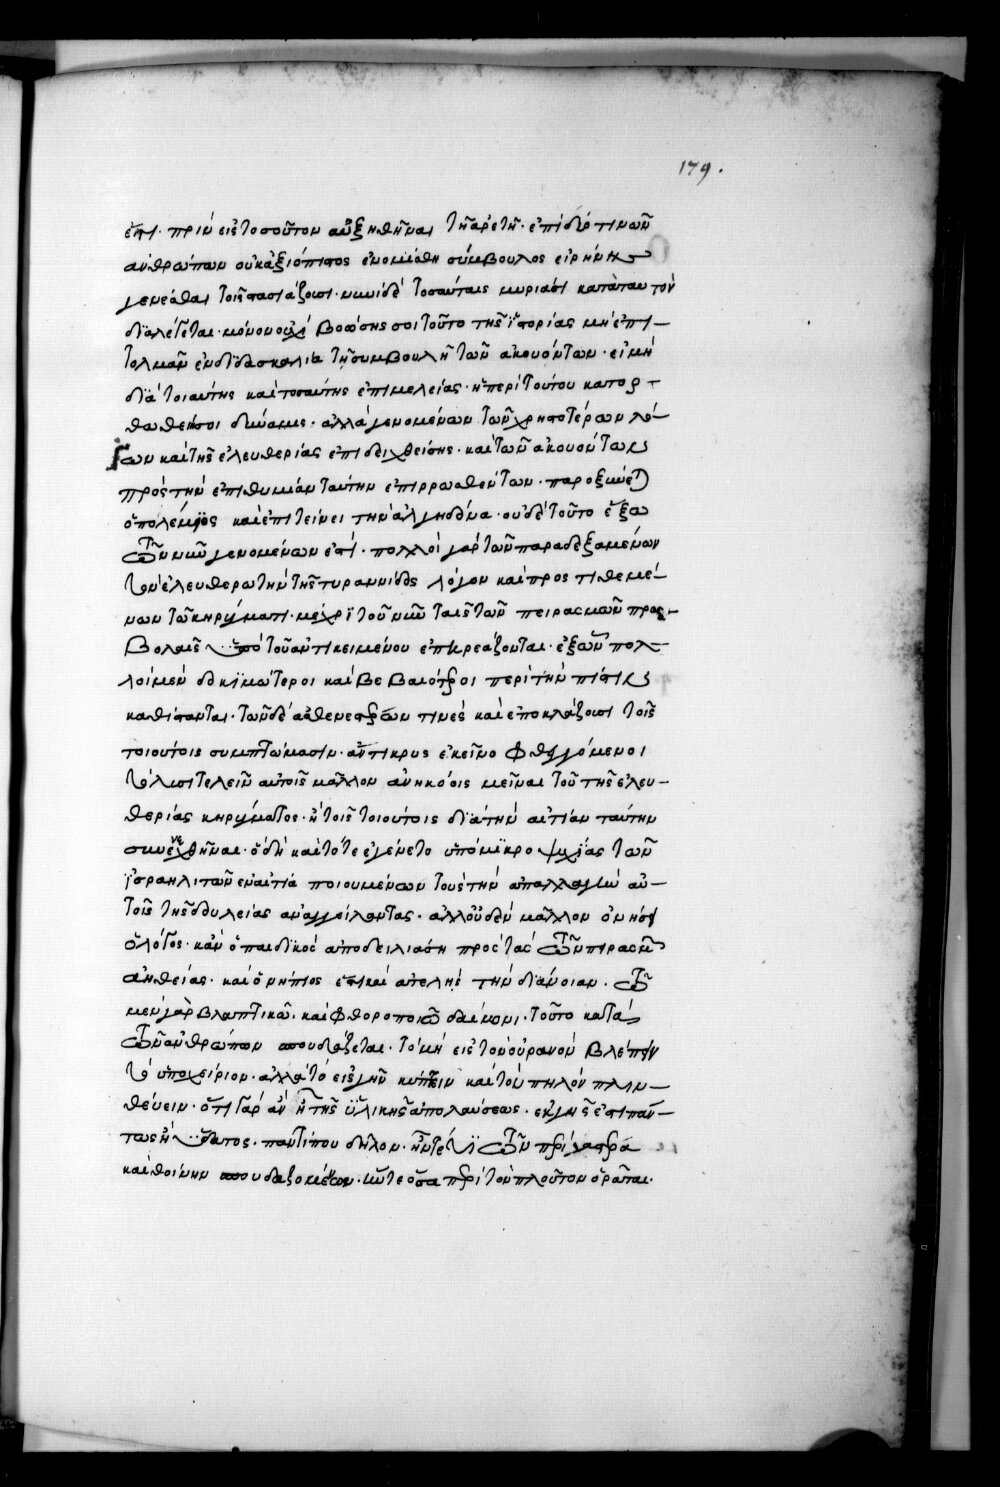 179.
ἔτι· πρὶν εἰς τοσοῦτον αὐξηθῆναι τῇ ἀρετῇ· ἐπὶ δύο τινῶν
ἀνθρώπων οὐκ ἀξιόπιστος ἐνομίσθη σύμβουλος εἰρήνης
γενέσθαι τοῖς στασιάζουσι· νυνὶ δὲ τοσαύταις μυριάσι κατὰ ταυτὸν
διαλέγεται· μόνον οὐχὶ βοώσης σοι τοῦτο τῆς ἱστορίας μὴ ἐπι–
τολμᾶν ἐν διδασκαλία τῇ συμβουλῇ τῶν ἀκουόντων· εἰ μὴ
διὰ τοιαύτης καὶ τοσαύτης ἐπιμελείας· ἡ περὶ τούτου κατορ–
θωθείη σοι δύναμις· ἀλλὰ γενομένων τῶν χρηστοτέρων λό–
γων καὶ τῆς ἐλευθερίας ἐπιδειχθείσης· καὶ τῶν ἀκουόντων
πρὸς τὴν ἐπιθυμίαν ταύτην ἐπιρρωσθέντων· παροξύνεται
ὁ πολέμιος καὶ ἐπιτείνει τὴν ἀλγηδόνα· οὐδὲ τοῦτο ἔξω
τῶν νῦν γενομένων ἐστί· πολλοὶ γὰρ τῶν παραδεξαμένων
τὸν ἐλευθερωτὴν τῆς τυραννίδος λόγον καὶ προστιθεμέ–
νων τῷ κηρύγματι· μέχρι τοῦ νῦν ταῖς τῶν πειρασμῶν προσ–
βολαῖς ὑπὸ τοῦ ἀντικειμένου ἐπηρεάζονται· ἐξ ὧν πολ–
λοὶ μὲν δοκιμώτεροι καὶ βεβαιότεροι περὶ τὴν πίστιν
καθίστανται· τῶν δὲ ἀσθενεστέρων τινὲς καὶ ἐποκλάζουσι τοῖς
τοιούτοις συμπτώμασιν· ἄντικρυς ἐκεῖνο φθεγγόμενοι
τὸ λυσιτελεῖν αὐτοῖς μᾶλλον ἀνηκόοις μεῖναι τοῦ τῆς ἐλευ–
θερίας κηρύγματος· ἢ τοῖς τοιούτοις διὰ τὴν αἰτίαν ταύτην
συνενεχθῆναι· ὃ δὴ καὶ τότε ἐγένετο ὑπὸ μικροψυχίας τῶν
ἰσραηλιτῶν ἐν αἰτία ποιουμένων τοὺς τὴν ἀπαλλαγὴν αὐ–
τοῖς τῆς δουλείας ἀναγγείλαντας· ἀλλ' οὐδὲν μᾶλλον ὀκνήσει
ὁ λόγος· κἂν ὁ παιδικὸς ἀποδειλιάση πρὸς τὰς τῶν πειρασμῶν
ἀηθείας· καὶ ὁ νήπιος ἔτι καὶ ἀτελὴς τὴν διάνοιαν· τῷ
μὲν γὰρ βλαπτικῷ· καὶ φθοροποιῷ δαίμονι· τοῦτο κατὰ
τῶν ἀνθρώπων σπουδάζεται· τὸ μὴ εἰς τὸν οὐρανὸν βλέπειν
τὸ ὑποχείριον· ἀλλὰ τὸ εἰς γῆν κύπτειν καὶ τὸν πηλὸν πλιν–
θεύειν· ὅτι γὰρ ἂν ᾖ τῆς ὑλικῆς ἀπολαύσεως· ἐκ γῆς ἐστι πάν–
τως ἢ ὕδατος· παντί που δῆλον· ἤντε τι τῶν περὶ γαστέρα
καὶ θοίνην σπουδαζομένων· ἤν τε ὅσα περὶ τὸν πλοῦτον ὁρᾶται·